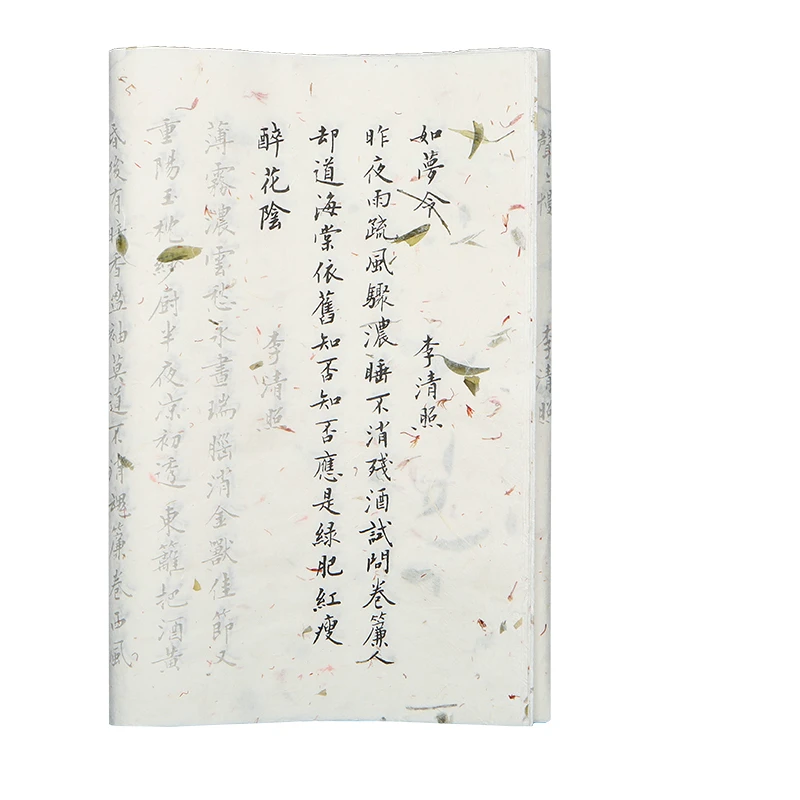 聲〻慢 李清照
如夢令 李清照
昨夜雨疏風驟濃睡不消残酒試問卷簾人
却道海棠依舊知否知否應是緑肥紅瘦
醉花陰 李清照
薄霧濃雲愁永晝瑞腦消金獸佳節又
重陽玉枕紗厨半夜凉初透東籬把酒黄
昏後有暗香盈袖莫道不消魂簾卷西風